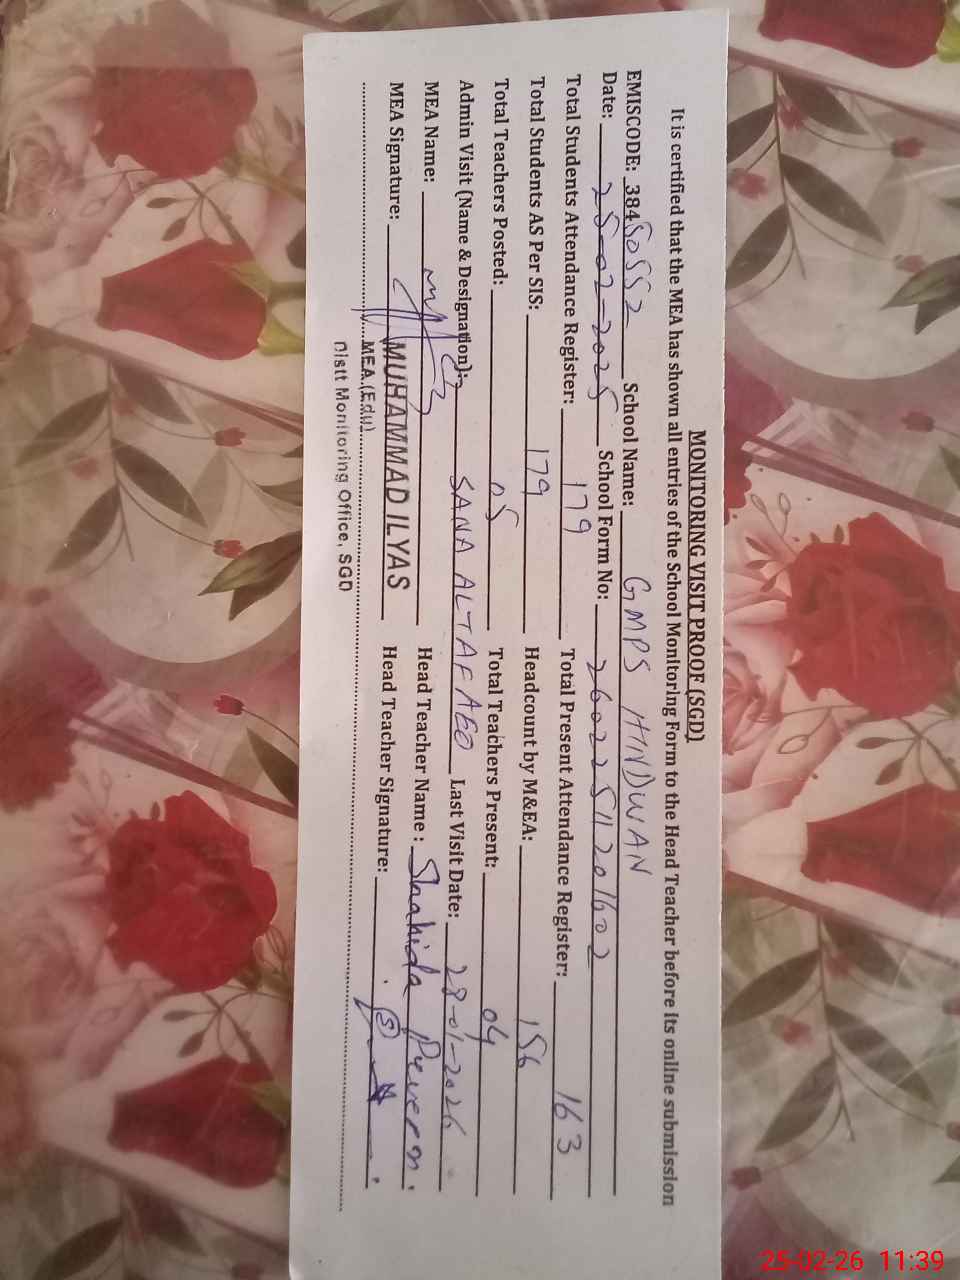 MONITORING VISIT PROOF (SGD)
It is certified that the MEA has shown all entries of the School Monitoring Form to the Head Teacher before its online submission
EMISCODE: 38450552 School Name: GMPS HINDWAN
Date: 25-02-2025 School Form No: 26022511201602
Total Students Attendance Register: 179 Total Present Attendance Register: 163
Total Students AS Per SIS: 179 Headcount by M&EA: 156
Total Teachers Posted: 05 Total Teachers Present: 04
Admin Visit (Name & Designation): SANA ALTAF AEO Last Visit Date: 28-01-2026
MEA Name: Head Teacher Name: Shahida Perveen.
MEA Signature: MUHAMMAD ILYAS Head Teacher Signature:
MEA (Edu)
Distt Monitoring Office, SGD
25-02-26 11:39